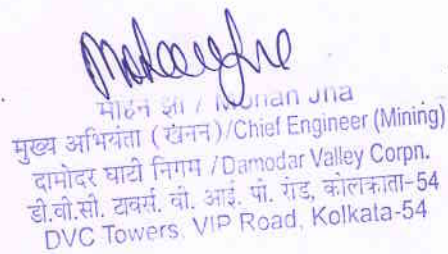 मोहन झा / Mohan Jha
मुख्य अभियंता (खनन)/Chief Engineer (Mining)
दामोदर घाटी निगम /Damodar Valley Corpn.
डी.वी.सी. टावर्स, वी. आई. पी. रोड, कोलकाता-54
DVC Towers, VIP Road, Kolkata-54